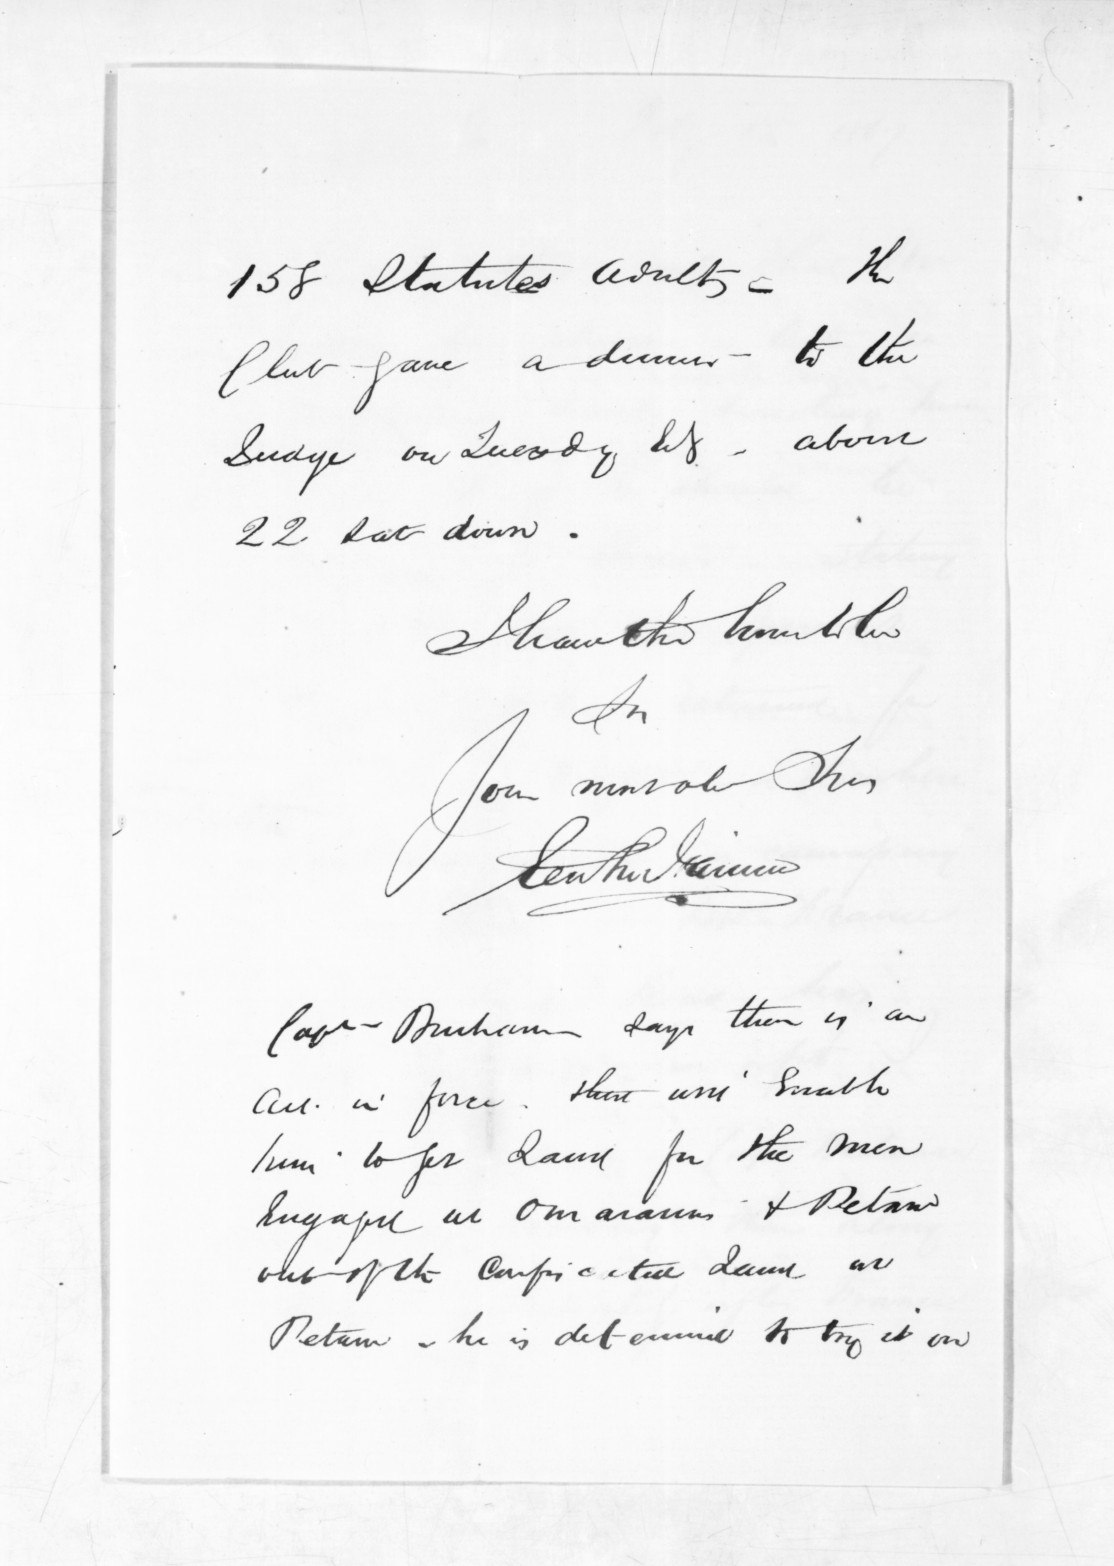 158 Statutes adults - The
Club gave a dinner to the
Judge on Tuesday . about
22 sat down .
I have the honor to be
Sir
Your most obt Svt

Capt says there is an
Act in force that will Enable
him to get Land for the men
Engaged at Omaranui & Petane
out of the Confiscated Land at
Petane - he is determined to try it on